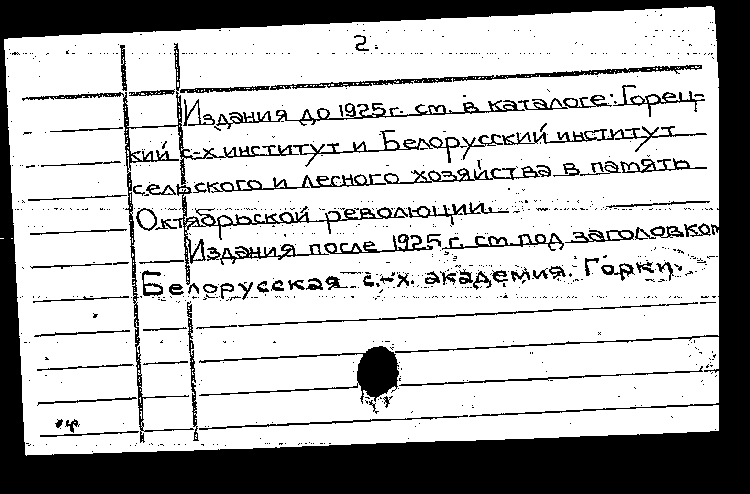 2.
Издания до 1925г. ст. в каталоге: Горец-
кий с-х институт и Белорусский институт
сельского и лесного хозяйства в память
Октябрьской революции.
Издания после 1925 г. ст. под заголовком
Белорусская с.-х. академия. Горки.